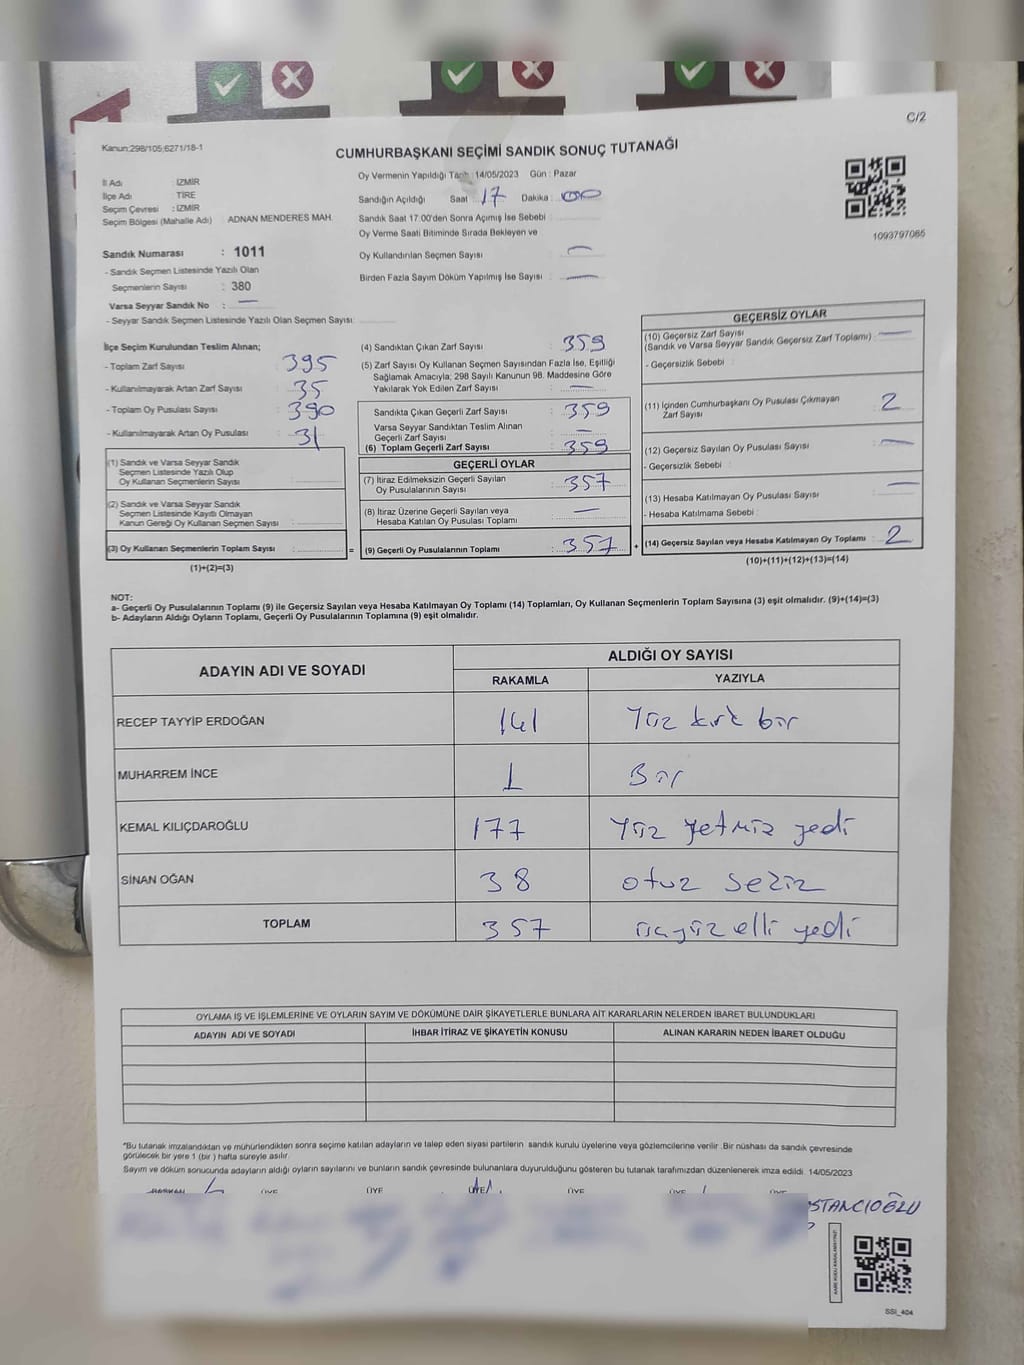 C/2
Kanun:298/105;6271/18-1
CUMHURBAŞKANI SEÇİMİ SANDIK SONUÇ TUTANAĞI
İl Adı : İZMİR
İlçe Adı : TİRE
Seçim Çevresi : İZMİR
Seçim Bölgesi (Mahalle Adı) ADNAN MENDERES MAH.
Sandık Numarası : 1011
- Sandık Seçmen Listesinde Yazılı Olan
Seçmenlerin Sayısı : 380
Varsa Seyyar Sandık No : —
- Seyyar Sandık Seçmen Listesinde Yazılı Olan Seçmen Sayısı:
Oy Vermenin Yapıldığı Tarih : 14/05/2023 Gün : Pazar
Sandığın Açıldığı Saat 17 Dakika : 00
Sandık Saat 17:00'den Sonra Açımış İse Sebebi :
Oy Verme Saati Bitiminde Sırada Bekleyen ve
Oy Kullandırılan Seçmen Sayısı : —
Birden Fazla Sayım Döküm Yapılmış İse Sayısı : —
1093797085
İlçe Seçim Kurulundan Teslim Alınan;
- Toplam Zarf Sayısı : 395
- Kullanılmayarak Artan Zarf Sayısı : 35
- Toplam Oy Pusulası Sayısı : 390
- Kullanılmayarak Artan Oy Pusulası : 31
(1) Sandık ve Varsa Seyyar Sandık
Seçmen Listesinde Yazılı Olup
Oy Kullanan Seçmenlerin Sayısı :
(2) Sandık ve Varsa Seyyar Sandık
Seçmen Listesinde Kayıtlı Olmayan
Kanun Gereği Oy Kullanan Seçmen Sayısı :
(3) Oy Kullanan Seçmenlerin Toplam Sayısı :
(1)+(2)=(3)
=
(4) Sandıktan Çıkan Zarf Sayısı : 359
(5) Zarf Sayısı Oy Kullanan Seçmen Sayısından Fazla İse, Eşitliği
Sağlamak Amacıyla; 298 Sayılı Kanunun 98. Maddesine Göre
Yakılarak Yok Edilen Zarf Sayısı : —
Sandıkta Çıkan Geçerli Zarf Sayısı : 359
Varsa Seyyar Sandıktan Teslim Alınan
Geçerli Zarf Sayısı : —
(6) Toplam Geçerli Zarf Sayısı : 359
GEÇERLİ OYLAR
(7) İtiraz Edilmeksizin Geçerli Sayılan
Oy Pusulalarının Sayısı : 357
(8) İtiraz Üzerine Geçerli Sayılan veya
Hesaba Katılan Oy Pusulası Toplamı : —
(9) Geçerli Oy Pusulalarının Toplamı : 357
+
GEÇERSİZ OYLAR
(10) Geçersiz Zarf Sayısı : —
(Sandık ve Varsa Seyyar Sandık Geçersiz Zarf Toplamı)
- Geçersizlik Sebebi :
(11) İçinden Cumhurbaşkanı Oy Pusulası Çıkmayan
Zarf Sayısı : 2
(12) Geçersiz Sayılan Oy Pusulası Sayısı : —
- Geçersizlik Sebebi :
(13) Hesaba Katılmayan Oy Pusulası Sayısı : —
- Hesaba Katılmama Sebebi :
(14) Geçersiz Sayılan veya Hesaba Katılmayan Oy Toplamı : 2
(10)+(11)+(12)+(13)=(14)
NOT:
a- Geçerli Oy Pusulalarının Toplamı (9) ile Geçersiz Sayılan veya Hesaba Katılmayan Oy Toplamı (14) Toplamları, Oy Kullanan Seçmenlerin Toplam Sayısına (3) eşit olmalıdır. (9)+(14)=(3)
b- Adayların Aldığı Oyların Toplamı, Geçerli Oy Pusulalarının Toplamına (9) eşit olmalıdır.
ADAYIN ADI VE SOYADI ALDIĞI OY SAYISI
RAKAMLA YAZIYLA
RECEP TAYYİP ERDOĞAN 141 Yüz kırk bir
MUHARREM İNCE 1 Bir
KEMAL KILIÇDAROĞLU 177 Yüz yetmiz yedi
SİNAN OĞAN 38 otuz seziz
TOPLAM 357 üçyüz elli yedi
OYLAMA İŞ VE İŞLEMLERİNE VE OYLARIN SAYIM VE DÖKÜMÜNE DAİR ŞİKAYETLERLE BUNLARA AİT KARARLARIN NELERDEN İBARET BULUNDUKLARI
ADAYIN ADI VE SOYADI İHBAR İTİRAZ VE ŞİKAYETİN KONUSU ALINAN KARARIN NEDEN İBARET OLDUĞU
*Bu tutanak imzalandıktan ve mühürlendikten sonra seçime katılan adayların ve talep eden siyasi partilerin sandık kurulu üyelerine veya gözlemcilerine verilir .Bir nüshası da sandık çevresinde
görülecek bir yere 1 (bir ) hafta süreyle asılır.
Sayım ve döküm sonucunda adayların aldığı oyların sayılarını ve bunların sandık çevresinde bulunanlara duyurulduğunu gösteren bu tutanak tarafımızdan düzenlenerek imza edildi. 14/05/2023
ÜYE ÜYE ÜYE ÜYE ÜYE
STANCIOĞLU
SSI_404